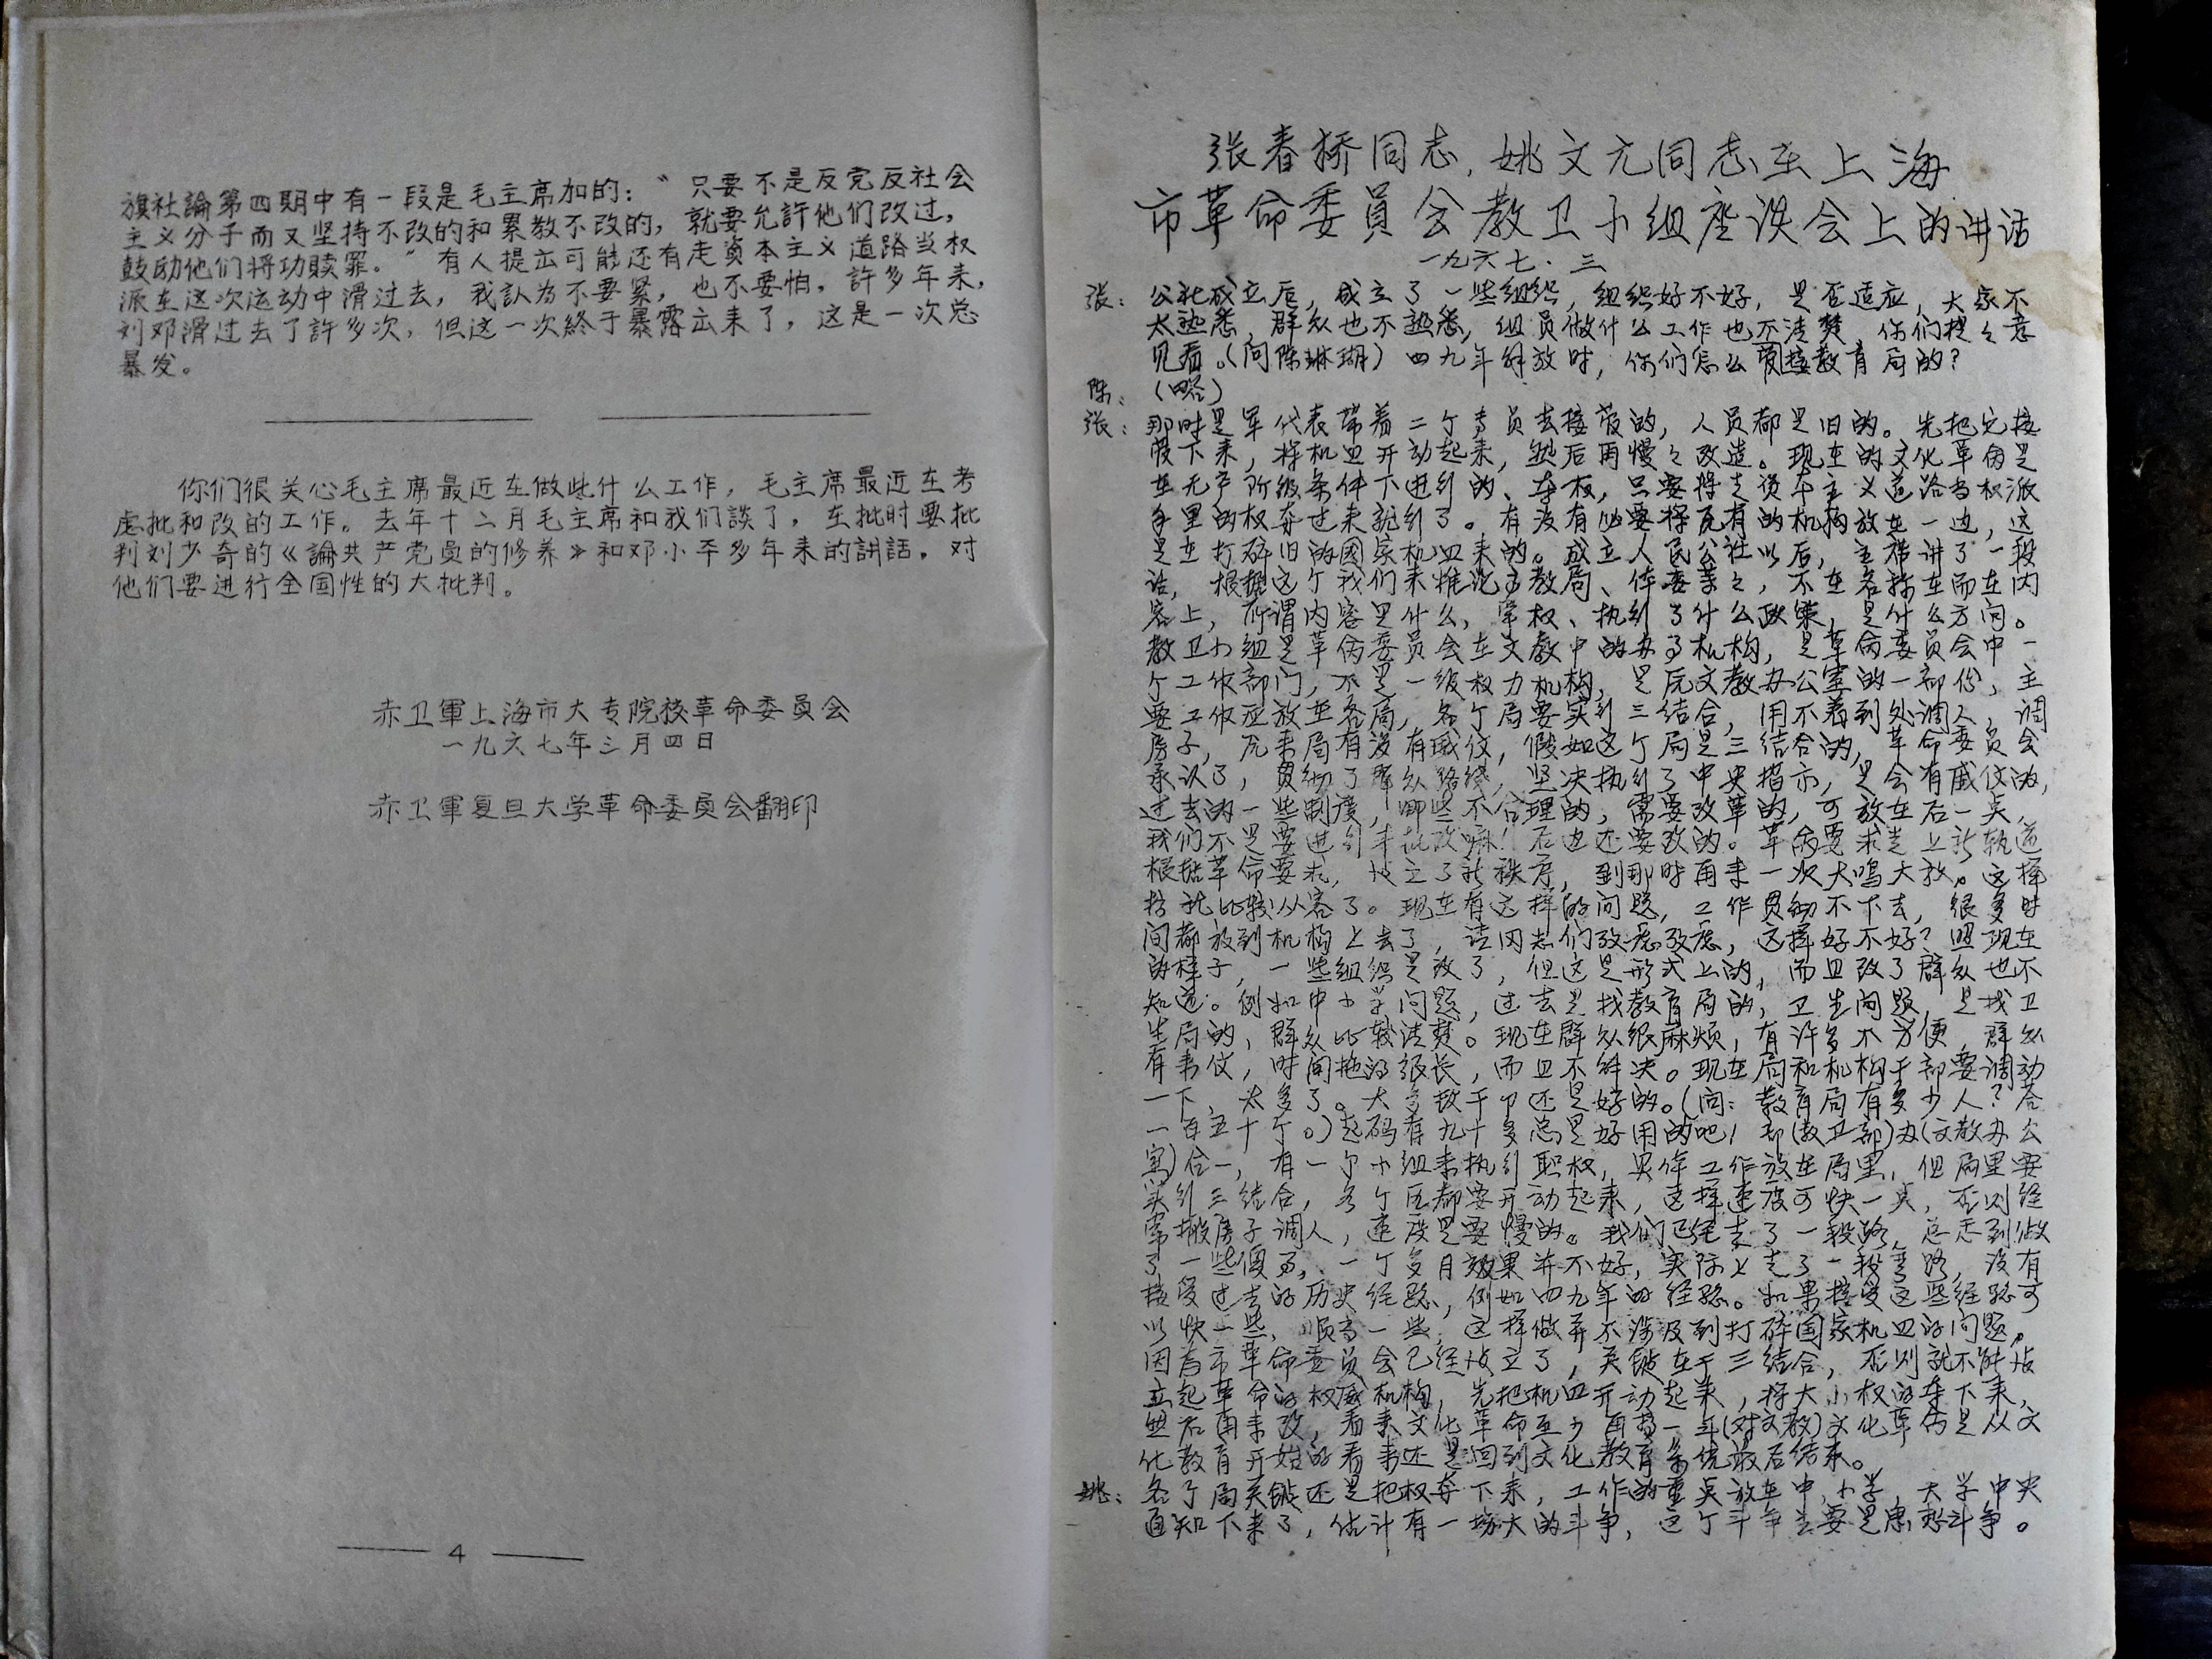 旗社論第四期中有一段是毛主席加的：“只要不是反党反社会
主义分子而又坚持不改的和累教不改的，就要允許他们改过，
鼓励他们将功贖罪。”有人提出可能还有走資本主义道路当权
派在这次运动中滑过去，我認为不要紧，也不要怕，許多年来，
刘邓滑过去了許多次，但这一次終于暴露出来了，这是一次总
暴发。
你们很关心毛主席最近在做些什么工作，毛主席最近在考
虑批和改的工作。去年十二月毛主席和我们談了，在批时要批
判刘少奇的《論共产党員的修养》和邓小平多年来的講話。对
他们要进行全国性的大批判。
赤卫軍上海市大专院校革命委員会
一九六七年三月四日
赤卫軍复旦大学革命委員会翻印
4
张春桥同志，姚文元同志在上海
市革命委員会教卫小组座谈会上的讲话
一九六七·三
张：公社成立后，成立了一些组织，组织好不好，是否适应，大家不
太熟悉，群众也不熟悉，组员做什么工作也不清楚，你们提々意
见看。（问陈琳瑚）四九年解放时，你们怎么管接教育局的？
陈：（略）
张：那时是军代表带着二个专员去接管的，人员都是旧的。先把它接
管下来，将机四开动起来，然后再慢々改造。现在的文化革命是
在无产阶级条件下进行的、夺权，只要将走资本主义道路当权派
手里的权夺过来就行了。有没有必要将原有的机构放在一边，这
是在打碎旧的國家机四来的。成立人民公社以后，主席讲了一段
话，根据这个我们来推论，教局、体委等々，不在名称在而在内
容上，所谓内容是什么，掌权、执行了什么政策，是什么方向。
教卫小组是革命委员会在文教中的办事机构，是革命委员会中一
个工作部门，不是一级权力机构，是原文教办公室的一部份，主
要工作应放在各局，各个局要实行三结合，用不着到处调人，调
房子，原来局有没有威仗，假如这个局是三结合的，革命委员会
承认了，贯彻了群众路线，坚决执行了中央指示，是会有威仗的，
过去的一些制度，哪些不合理的，需要改革的，可放在后一点，
我们不是要进行斗批改嘛！后边还要改的。革命要求走上新轨道
根据革命要求，成立了新秩序，到那时再来一次大鸣大放。这样
搞就比較从容了。现在有这样的问题，工作贯彻不下去，很多时
间都放到机构上去了，请同志们改虑改虑，这样好不好？照现在
的样子，一些组织是改了，但这是形式上的，而且改了群众也不
知道。例如中小学问题，过去是找教育局的，卫生问题，是找卫
生局的，群众比较清楚。现在群众很麻烦，有许多不方便，群众
有书仗，时间拖的很长，而且不解决。现在局和机构干部要调动
一下，太多了。大多数干卩还是好的。（问：教育局有多少人？答
一百五十个。）起码有九十多总是好用的吧！部（教卫部）办（文教办公
室）合一，有一个小组来执行职权，具体工作放在局里，但局里要
实行三结合，各个区都要开动起来，这样速度可快一点，否则经
常搬房子调人，速度是要慢的。我们已经走了一段路，
了一些便了，一个多月效果并不好，实际上走了一段弯路，没有
接受过去的历史经验，例如四九年的经验。如果接受这些经验可
以快一些，顺当一些，这样做并不涉及到打碎国家机四的问题。
因为市革命委员会已经成立了，关键在于三结合，否则就不能成
立起革命的权威机构，先把机四开动起来，将大小权的夺下来，
然后再来改，看来文化革命至少再搞一年（对文教）文化革命是从文
化教育开始的看来还是回到文化教育系统最后结束。
姚：各个局关键还是把权夺下来，工作的重点放在中，小学，大学中央
通知下来了，估计有一场大的斗争，这个斗争主要是思想斗争。